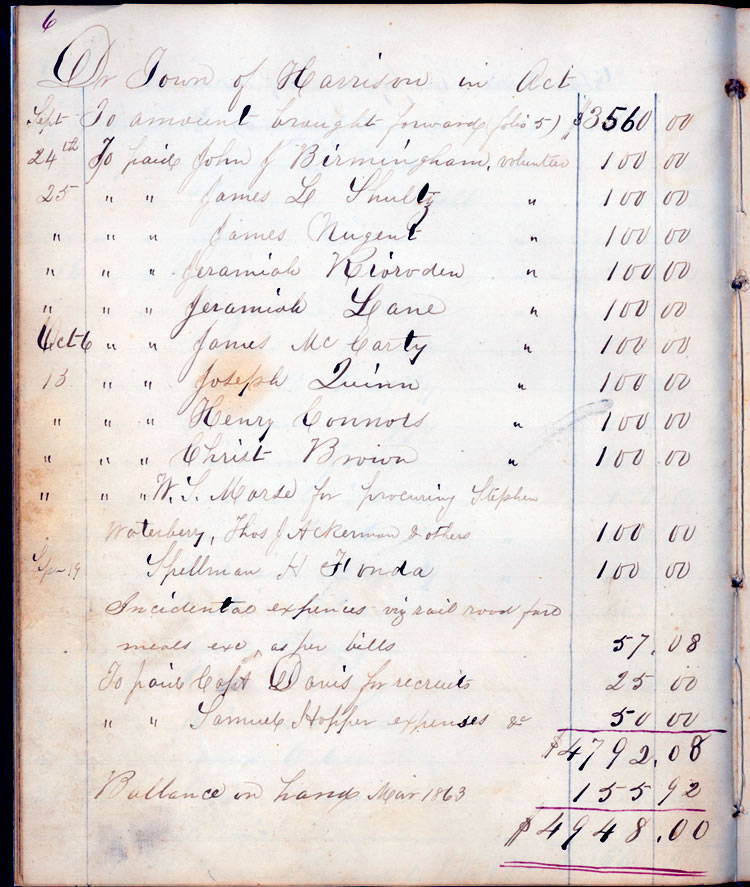 6
Dr Town of Harrison in Act
Sept To amount brought forward (folio 5) $3560 00
24th To paid John J Birmingham, volunteer 100 00
25 " " James L Shultz " 100 00
" " " James Nugent " 100 00
" " " Jeramiah Riorvden " 100 00
" " " Jeramiah Lane " 100 00
Oct 6 " " James McCarty " 100 00
13 " " Joseph Quinn " 100 00
" " " Henry Connors " 100 00
" " " Christ Brown " 100 00
" " " W. S. Morse for procuring Stephen
Waterberry, Thos J Ackerman & others 100 00
19 Spellman H Fonda 100 00
Incidental expences viz rail road fare
meals exc, as per bills 57.08
To paid Capt Davis for recruits 25 00
" " Samuel Hopper expenses &c 50 00
$4792.08
Ballance on hand Mar 1863 155 92
$4948.00